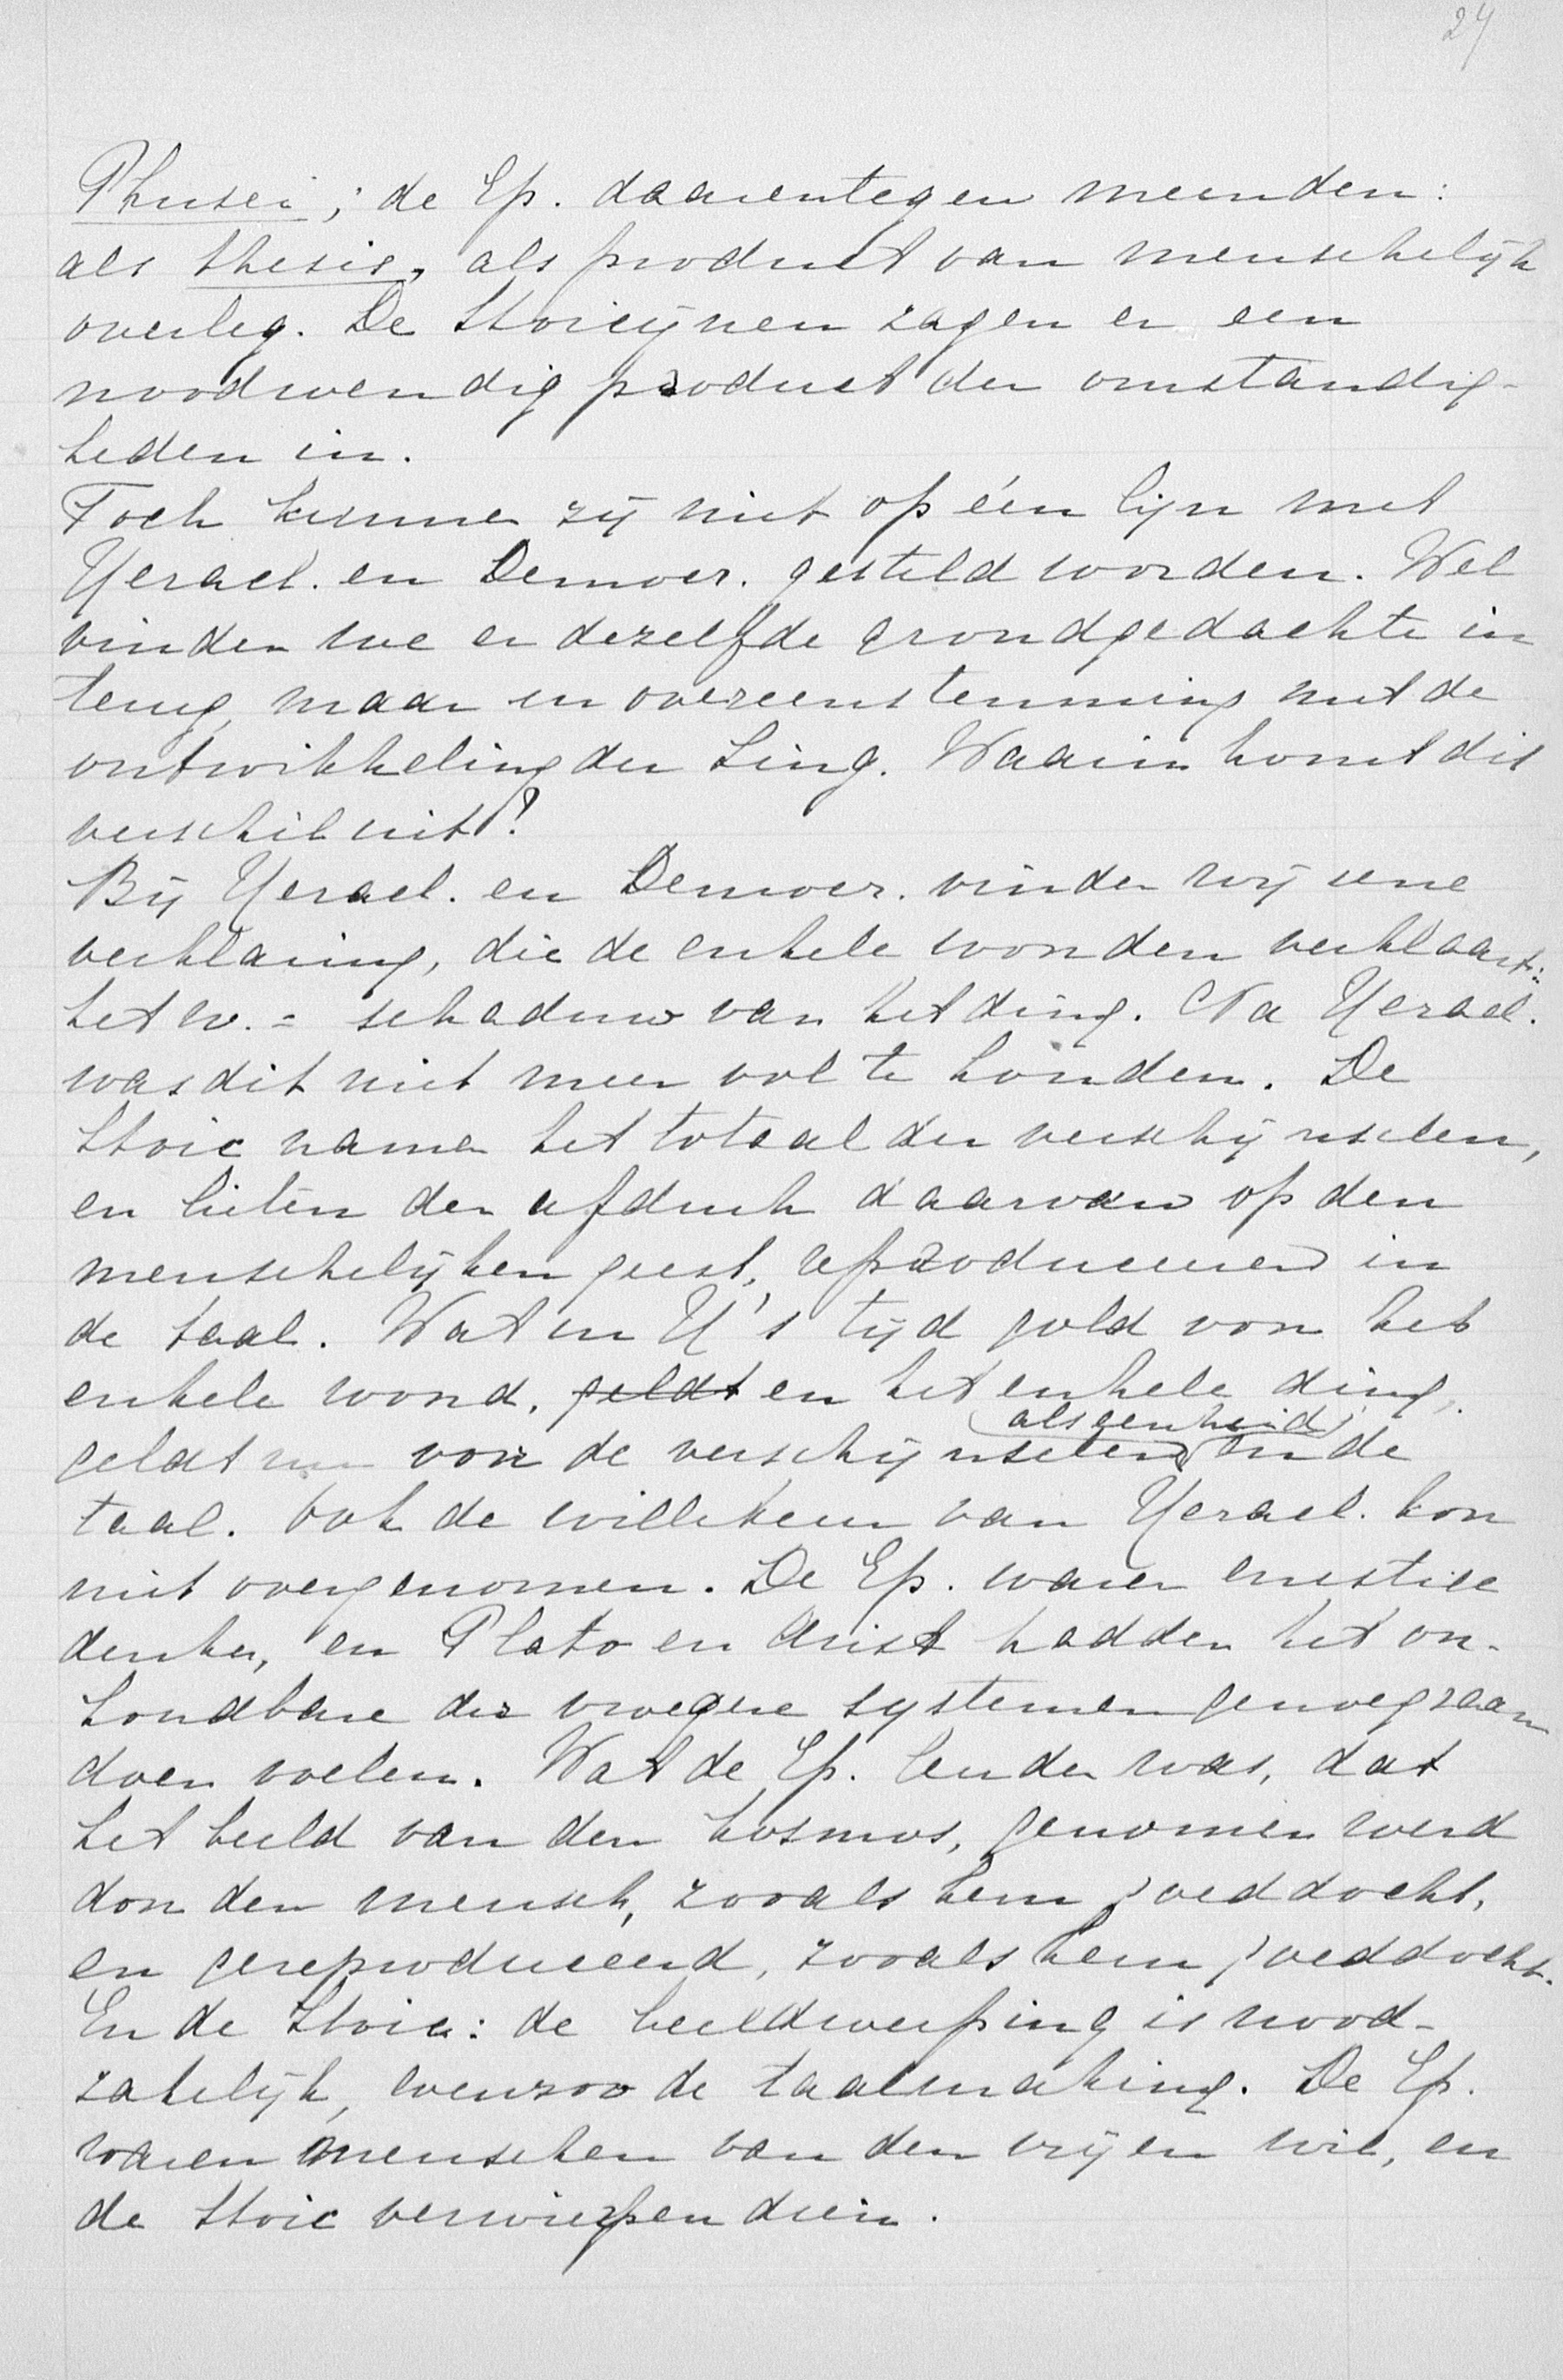 24
Phusei; de Ep. daarentegen meenden:
als thesis, als product van menschelijk
overleg. De Stoicijnen zagen er een
noodwendig product der omstandig-
heden in.
Toch kunnen zij niet op één lijn met
Heracl. en Democr. gesteld worden. Wel
vinden we er dezelfde grondgedachte in
terug, maar in overeenstemming met de
ontwikkeling der Ling. Waarin komt dit
verschil uit?
Bij Heracl. en Democr. vinden wij eene
verklaring, die de enkele woorden verklaart:
het w. = schaduw van het ding. Na Heracl.
was dit niet meer vol te houden. De
Stoic namen het totaal der verschijnselen,
en lieten den afdruk daarvan op den
menschelijken geest, reproduceeren in
de taal. Wat in H's tijd gold voor het
enkele woord, geldt en het enkele ding,
als eenheid
geldt nu voor de verschijnselen en de
taal. Ook de willekeur van Heracl. kon
niet overgenomen. De Ep. waren ernstige
denkers, en Plato en Arist hadden het on-
houdbare der vroegere systemen genoegzaam
doen voelen. Wat de Ep. leerden was, dat
het beeld van den kosmos, genomen werd
door den mensch, zooals hem goeddocht,
en gereproduceerd, zooals hem goeddocht.
En de Stoic: de beeldwerping is nood-
zakelijk, evenzoo de taalmaking. De Ep.
waren menschen van den vrijen wil, en
de Stoic verwierpen dien.